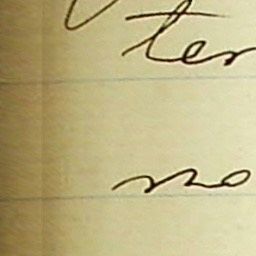 ter
no